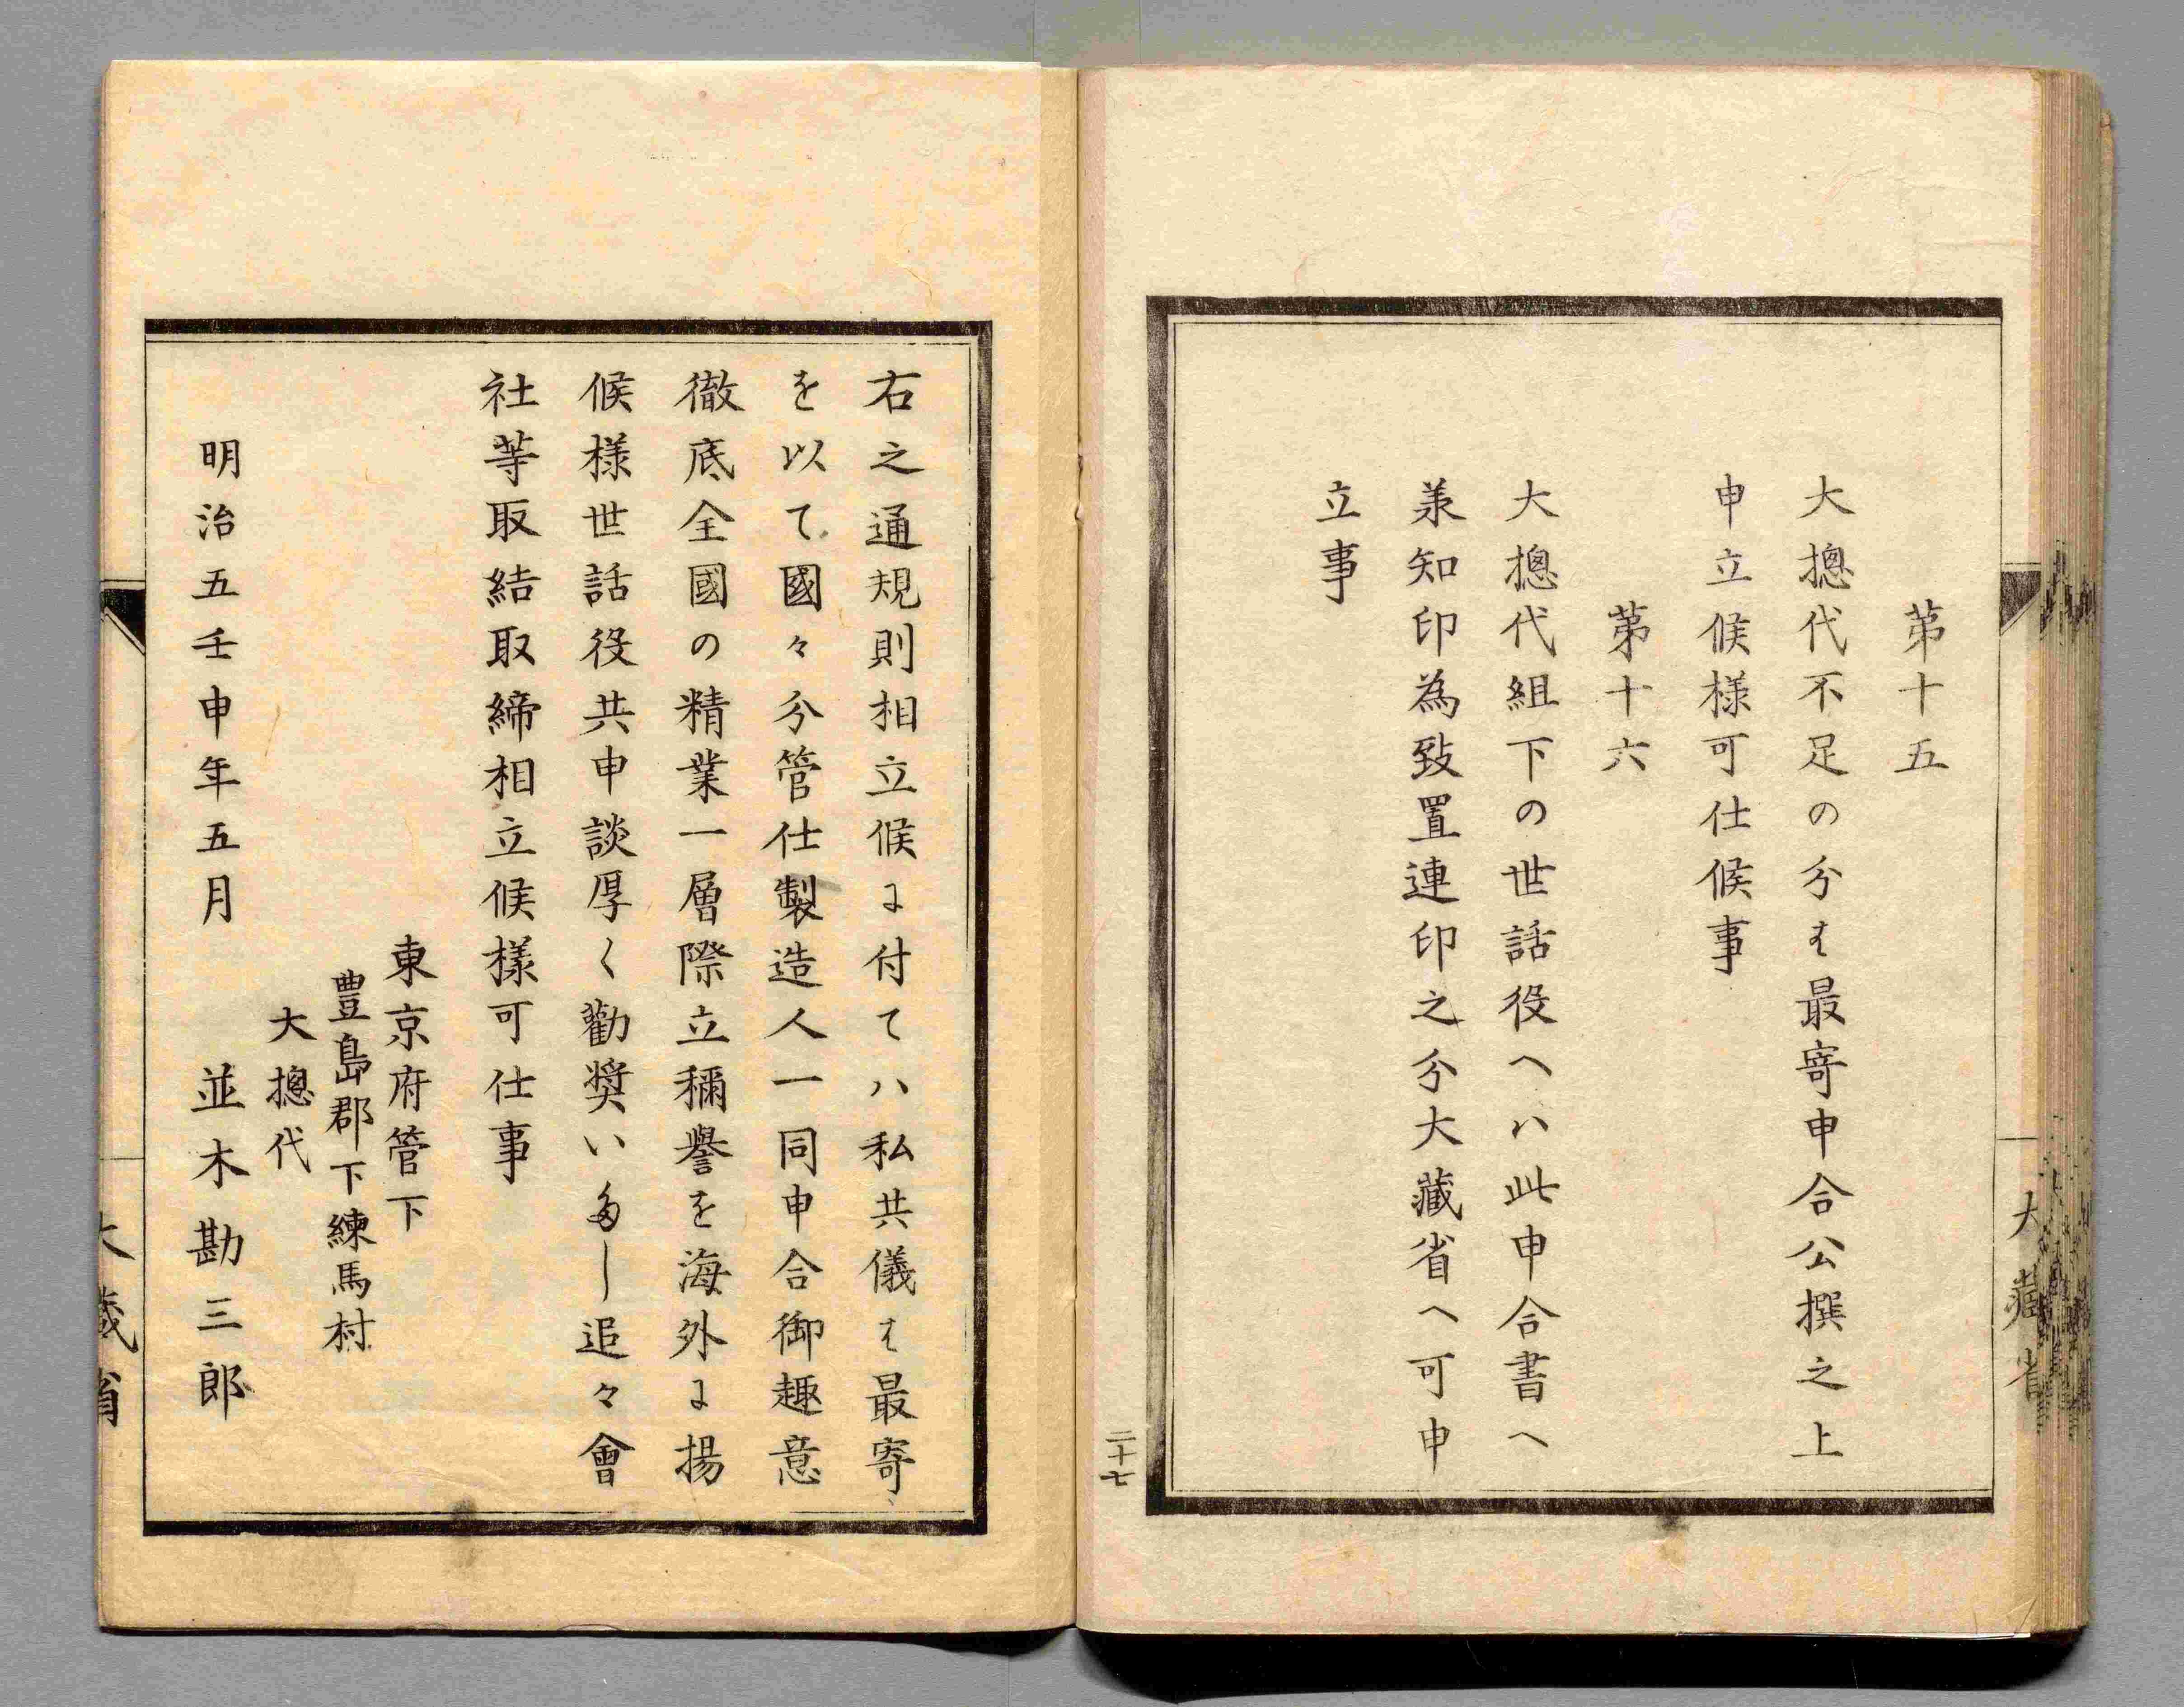 第十五
大摠代不足の分は最寄申合公撰之上
申立候様可仕候事
第十六
大摠代組下の世話役へハ此申合書へ
羕知印為致置連印之分大藏省へ可申
立事
二十七
大藏省
右之通規則相立候に付てハ私共儀は最寄
を以て國々分管仕製造人一同申合御趣意
徹底全國の精業一層際立穪譽を海外に揚
候様世話役共申談厚く勸奨いたし追々會
社等取結取締相立候様可仕事
東京府管下
豊島郡下練馬村
大摠代
並木勘三郎
明治五壬申年五月
大藏省